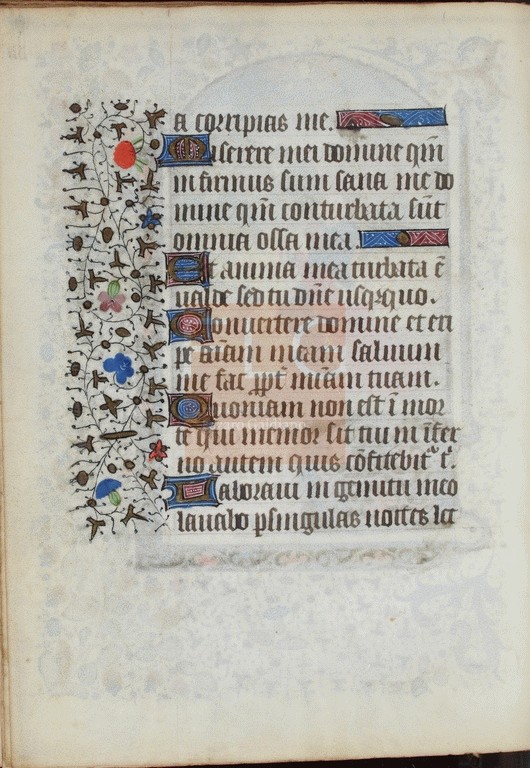 a corripias me.
Miserere mei domine qm̄
infirmus sum sana me do
mine qm̄ conturbata sūt
omnia ossa mea.
Et anima mea turbata ē
ualde sed tu dn̄e usqꝫquo.
Conuertere domine et eri
pe aīam meam saluum
me fac ꝓpt̄ mīam tuam.
Quoniam non est ī mor
te qui memor sit tui in īfer
no autem quis cōfitebit᷑ t̄.
Laboraui in gemitu meo
lauabo ꝑ singulas noctes lec